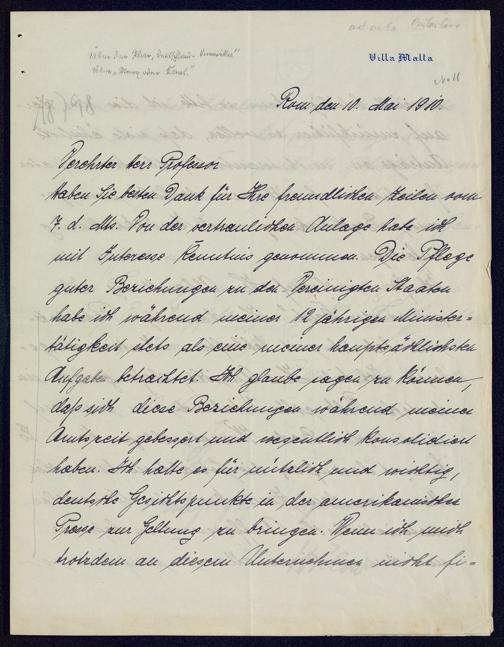 Villa Malta
Rom den 10. Mai 1910.
Verehrter Herr Professor
Haben Sie besten Dank für Ihre freundlichen Zeilen vom
7. d. Mts. Von der vertraulichen Anlage habe ich
mit Interesse Kenntnis genommen. Die Pflege
guter Beziehungen zu den Vereinigten Staaten
habe ich während meiner 12 jährigen Minister-
tätigkeit stets als eine meiner hauptsächlichsten
Aufgaben betrachtet. Ich glaube sagen zu können,
daß sich diese Beziehungen während meiner
Amtszeit gebessert und wesentlich konsolidiert
haben. Ich halte es für nützlich und wichtig,
deutsche Gesichtspunkte in der amerikanischen
Presse zur Geltung zu bringen. Wenn ich mich
trotzdem an diesem Unternehmen nicht fi-